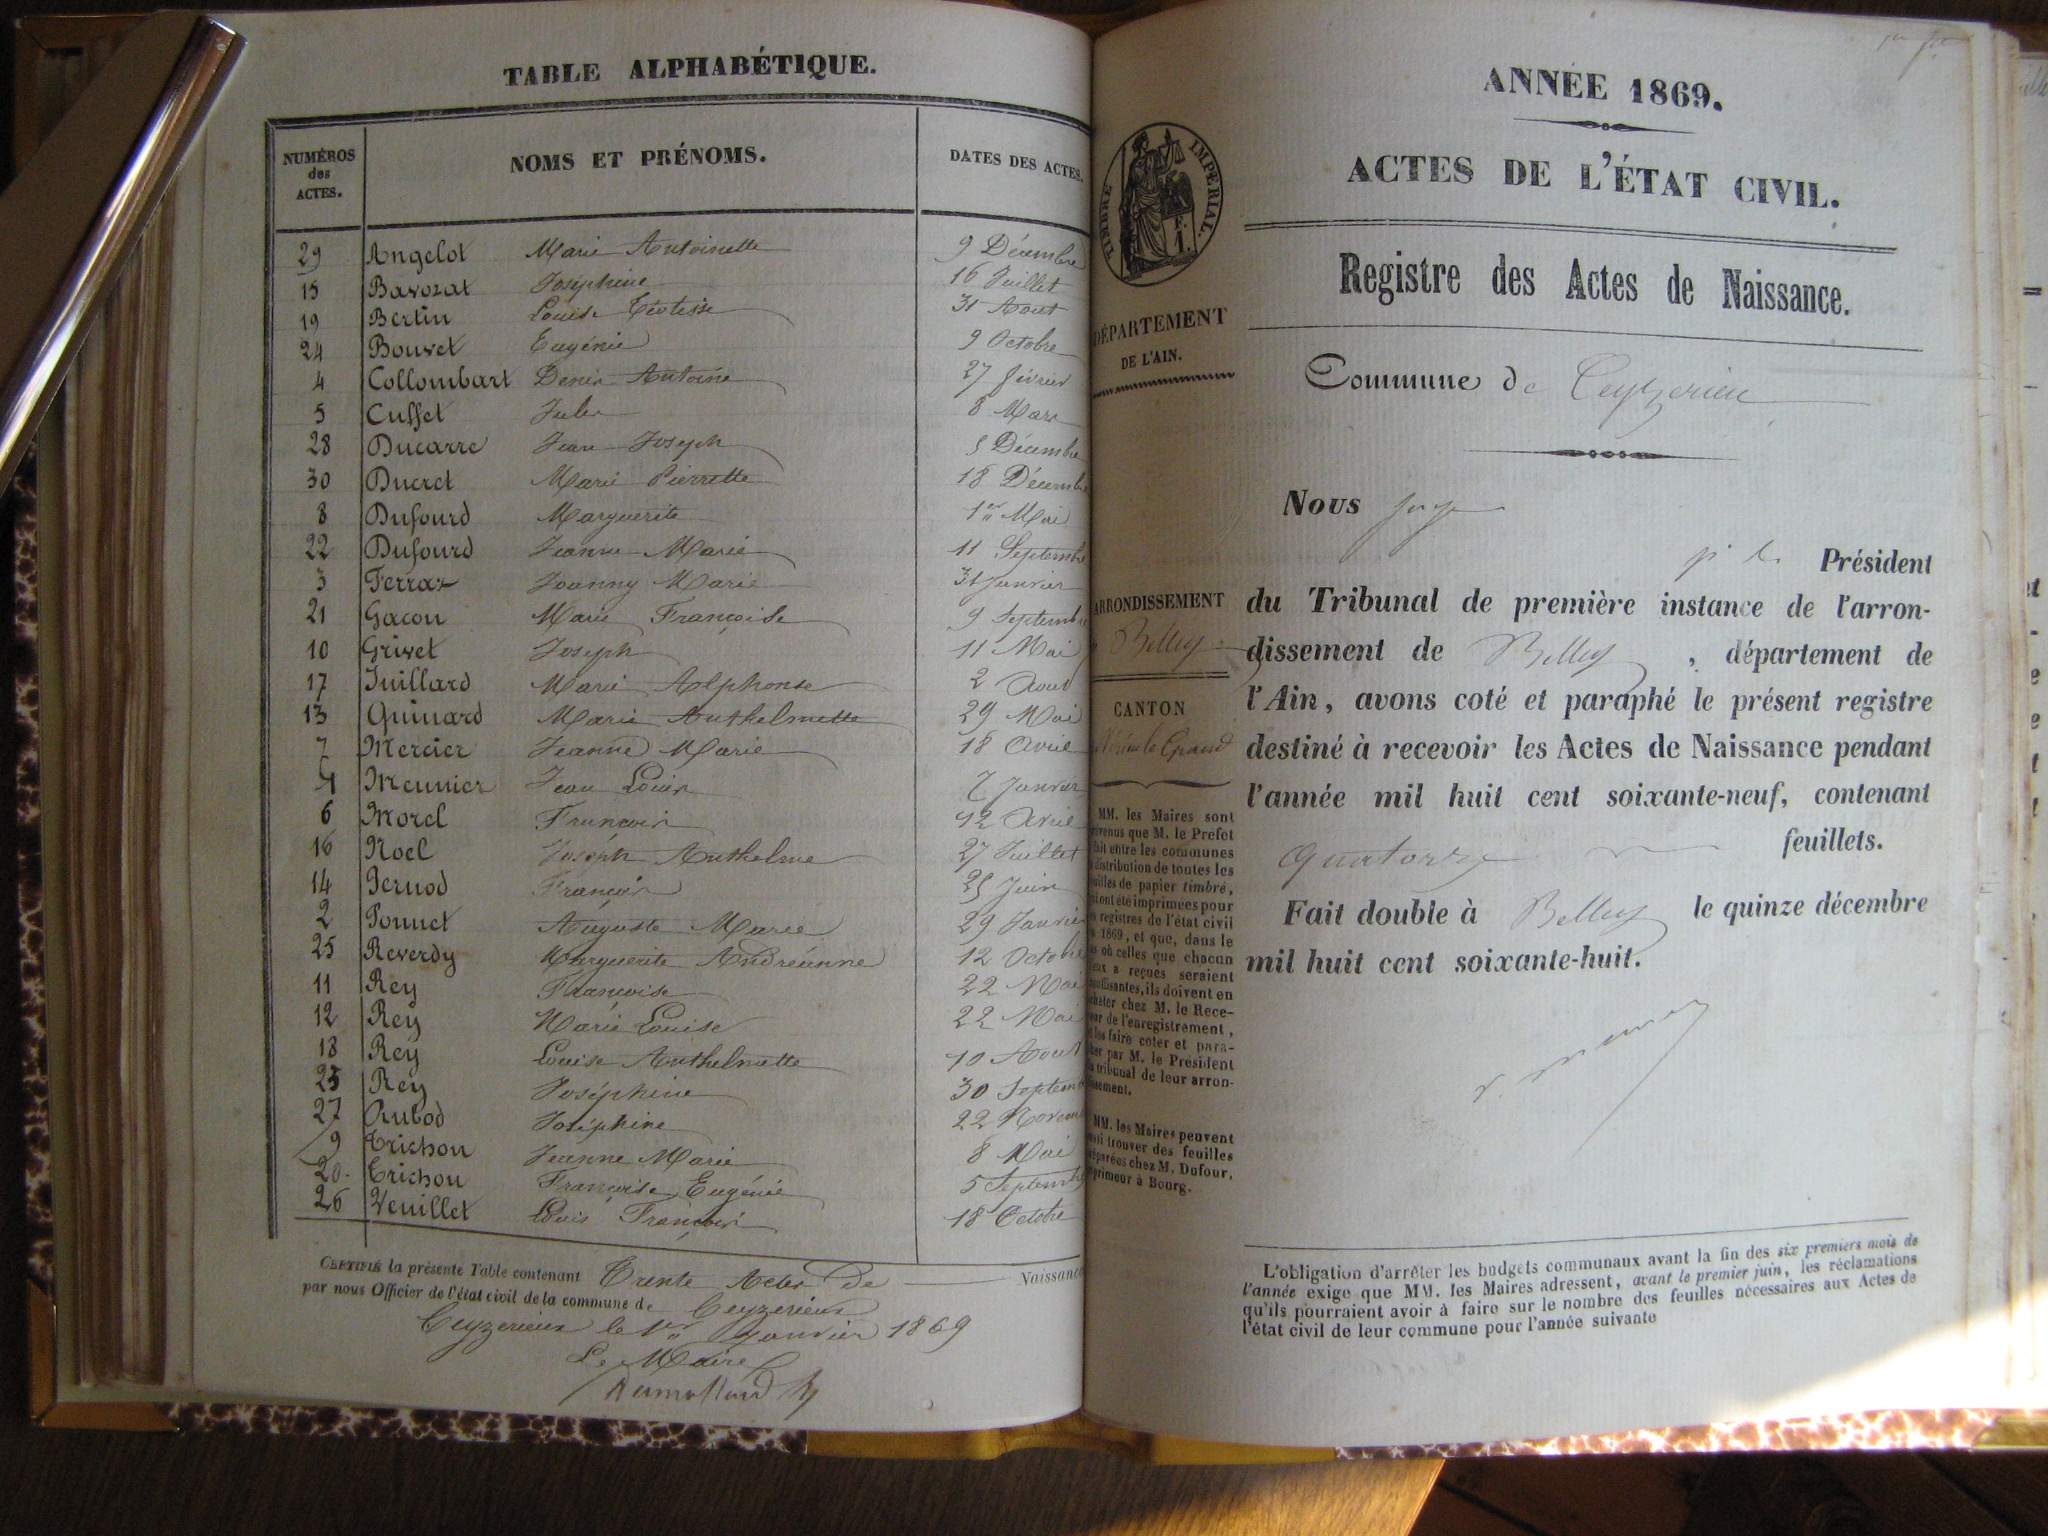 TABLE ALPHABÉTIQUE.
NUMÉROS des ACTES. NOMS ET PRÉNOMS. DATES DES ACTES.
29 Angelot Marie Antoinette 9 Décembre
15 Bavozat Joséphine 16 Juillet
19 Bertin Louise 31 Aout
24 Bouvet Eugénie 9 Octobre
4 Collombart Denis Antoine 27 février
5 Cuffet Jules 8 Mars
28 Ducarre Jean Joseph 5 Décembre
30 Ducret Marie Pierrette 18 Décembre
8 Dufourd Marguerite 1er Mai
22 Dufourd Jeanne Marie 11 Septembre
3 Ferraz Joanny Marie 31 Janvier
21 Gacon Marie Françoise 9 Septembre
10 Grivet Joseph 11 Mai
17 Juillard Marie Alphonse 2 Aout
13 Guinard Marie Anthelmette 29 Mai
7 Mercier Jeanne Marie 18 Avril
1 Meunier Jean Louis 7 Janvier
6 Morel François 12 Avril
16 Noel Joseph Anthelme 27 Juillet
14 Pernod François 25 Juin
2 Ponnet Auguste Marie 29 Janvier
25 Reverdy Marguerite Andréanne 12 Octobre
11 Rey Françoise 22 Mai
12 Rey Marie Louise 22 Mai
18 Rey Louise Anthelmette 10 Aout
23 Rey Joséphine 30 Septemb
27 Rubod Joséphine 22 Novem
9 Trichon Jeanne Marie 8 Mai
20 Trichon Françoise Eugénie 5 Septemb
26 Veuillet Louis François 18 Octobre
CERTIFIÉ la présente Table contenant Trente Actes de Naissance
par nous Officier de l'état civil de la commune de Ceyzerieux
Ceyzerieux le 1er Janvier 1869
Le Maire
ANNÉE 1869.
ACTES DE L'ÉTAT CIVIL.
TIMBRE IMPÉRIAL.
Registre des Actes de Naissance.
DÉPARTEMENT
DE L'AIN.
Commune de Ceyzerieu
Nous juge
Président
ARRONDISSEMENT
Belley
du Tribunal de première instance de l'arron-
dissement de Belley, département de
l'Ain, avons coté et paraphé le présent registre
destiné à recevoir les Actes de Naissance pendant
l'année mil huit cent soixante-neuf, contenant
quatorze feuillets.
Fait double à Belley le quinze décembre
mil huit cent soixante-huit.
CANTON
le Grand
MM. les Maires sont
prévenus que M. le Préfet
fait entre les communes
distribution de toutes les
feuilles de papier timbré,
ont été imprimées pour
registres de l'état civil
1869, et que, dans le
cas où celles que chacun
eux a reçues seraient
insuffisantes, ils doivent en
acheter chez M. le Rece-
veur de l'enregistrement,
les faire coter et para-
pher par M. le Président
tribunal de leur arron-
dissement.
MM. les Maires peuvent
aussi trouver des feuilles
préparées chez M. Dufour,
imprimeur à Bourg.
L'obligation d'arrêter les budgets communaux avant la fin des six premiers mois de
l'année exige que MM. les Maires adressent, avant le premier juin, les réclamations
qu'ils pourraient avoir à faire sur le nombre des feuilles nécessaires aux Actes de
l'état civil de leur commune pour l'année suivante